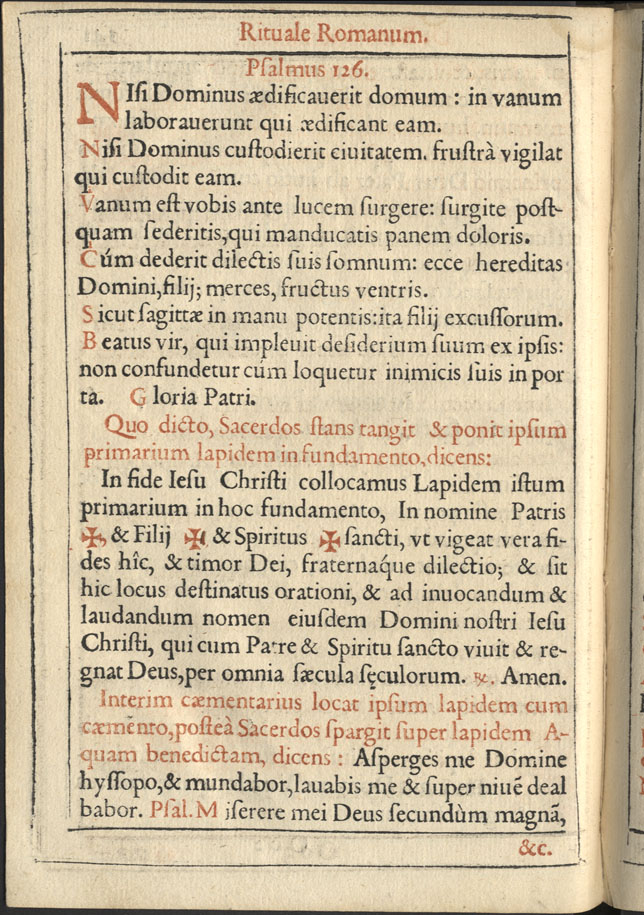 Rituale Romanum.
Psalmus 126.
NIſi Dominus ædificauerit domum : in vanum
laborauerunt qui ædificant eam.
Niſi Dominus cuſtodierit ciuitatem. fruſtrà vigilat
qui cuſtodit eam.
Vanum eſt vobis ante lucem ſurgere: ſurgite poſt-
quam ſederitis,qui manducatis panem doloris.
Cúm dederit dilectis ſuis ſomnum: ecce hereditas
Domini,filij; merces, fructus ventris.
Sicut ſagittæ in manu potentis:ita filij excuſſorum.
Beatus vir, qui impleuit deſiderium ſuum ex ipſis:
non confundetur cúm loquetur inimicis ſuis in por
ta. Gloria Patri.
Quo dicto, Sacerdos ſtans tangit & ponit ipſum
primarium lapidem in fundamento,dicens:
In fide Ieſu Chriſti collocamus Lapidem iſtum
primarium in hoc fundamento, In nomine Patris
✠ & Filij ✠ & Spiritus ✠ ſancti, vt vigeat vera fi-
des hîc, & timor Dei, fraternáque dilectio; & ſit
hic locus deſtinatus orationi, & ad inuocandum &
laudandum nomen eiuſdem Domini noſtri Ieſu
Chriſti, qui cum Patre & Spiritu ſancto viuit & re-
gnat Deus,per omnia ſæcula ſęculorum. ℟. Amen.
Interim cæmentarius locat ipſum lapidem cum
cæmẽnto,poſteà Sacerdos ſpargit ſuper lapidem A-
quam benedictam, dicens : Aſperges me Domine
hyſſopo,& mundabor,lauabis me & ſuper niuẽ deal
babor. Pſal. Miſerere mei Deus ſecundùm magnã,
&c.